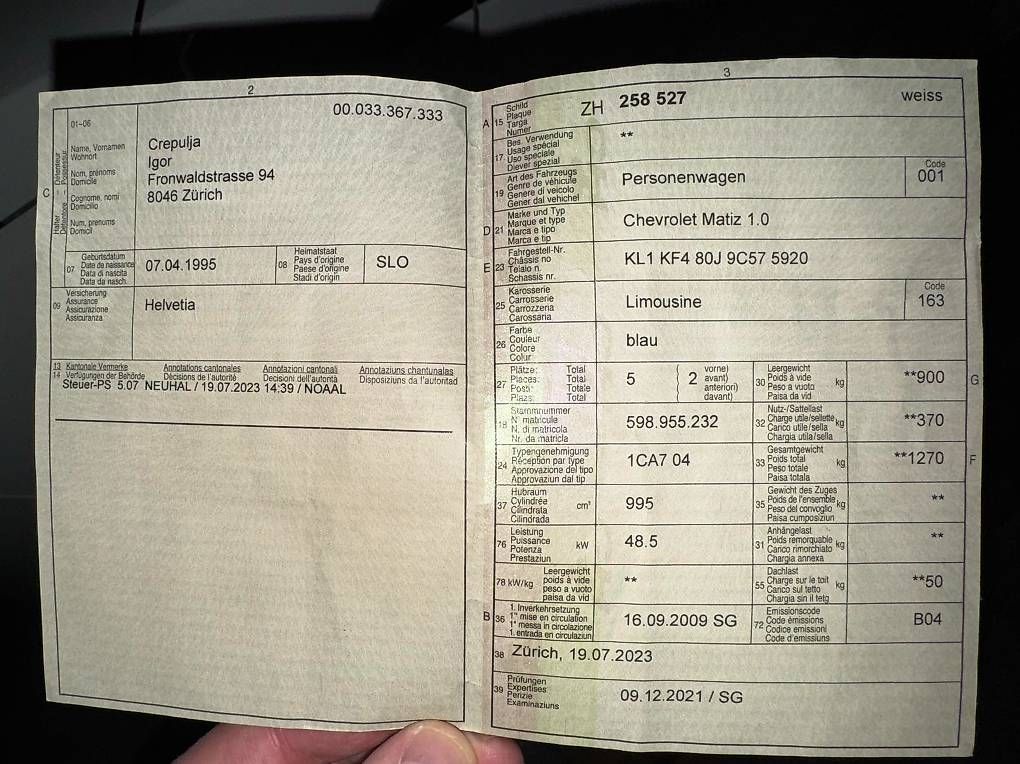 2
00.033.367.333
01-06
Name, Vornamen
Wohnort
Nom, prénoms
Domicile
Cognome, nomi
Domicilio
Num, prenums
Domicil
C
Halter – Détenteur
Detentore – Possessur
Crepulja
Igor
Fronwaldstrasse 94
8046 Zürich
07
Geburtsdatum
Date de naissance
Data di nascita
Data da nasch.
07.04.1995
08
Heimatstaat
Pays d'origine
Paese d'origine
Stadi d'origin
SLO
09
Versicherung
Assurance
Assicurazione
Assicuranza
Helvetia
13 Kantonale Vermerke Annotations cantonales Annotazioni cantonali Annotaziuns chantunalas
14 Verfügungen der Behörde Décisions de l'autorité Decisioni dell'autorità Disposiziuns da l'autoritad
Steuer-PS 5.07 NEUHAL / 19.07.2023 14:39 / NOAAL
3
A 15
Schild
Plaque
Targa
Numer
ZH 258 527 weiss
17
Bes. Verwendung
Usage spécial
Uso speciale
Diever spezial
**
19
Art des Fahrzeugs
Genre de véhicule
Genere di veicolo
Gener dal vehichel
Personenwagen
Code
001
D 21
Marke und Typ
Marque et type
Marca e tipo
Marca e tip
Chevrolet Matiz 1.0
E 23
Fahrgestell-Nr.
Châssis no
Telaio n.
Schassis nr.
KL1 KF4 80J 9C57 5920
25
Karosserie
Carrosserie
Carrozzeria
Carossaria
Limousine
Code
163
26
Farbe
Couleur
Colore
Colur
blau
27
Plätze: Total
Places: Total
Posti: Totale
Plazs: Total
5
2
vorne)
avant)
anteriori)
davant)
30
Leergewicht
Poids à vide
Peso a vuoto
Paisa da vid
kg
**900
G
18
Stammnummer
N° matricule
N. di matricola
Nr. da matricla
598.955.232
32
Nutz-/Sattellast
Charge utile/sellette
Carico utile/sella
Chargia utila/sella
kg
**370
24
Typengenehmigung
Réception par type
Approvazione del tipo
Approvaziun dal tip
1CA7 04
33
Gesamtgewicht
Poids total
Peso totale
Paisa totala
kg
**1270
F
37
Hubraum
Cylindrée
Cilindrata
Cilindrada
cm³
995
35
Gewicht des Zuges
Poids de l'ensemble
Peso del convoglio
Paisa cumposiziun
kg
**
76
Leistung
Puissance
Potenza
Prestaziun
kW
48.5
31
Anhängelast
Poids remorquable
Carico rimorchiato
Chargia annexa
kg
**
78 kW/kg
Leergewicht
poids à vide
peso a vuoto
paisa da vid
**
55
Dachlast
Charge sur le toit
Carico sul tetto
Chargia sin il tetg
kg
**50
B 36
1. Inverkehrsetzung
1re mise en circulation
1a messa in circolazione
1. entrada en circulaziun
16.09.2009 SG
72
Emissionscode
Code émissions
Codice emissioni
Code d'emissiuns
B04
38 Zürich, 19.07.2023
39
Prüfungen
Expertises
Perizie
Examinaziuns
09.12.2021 / SG